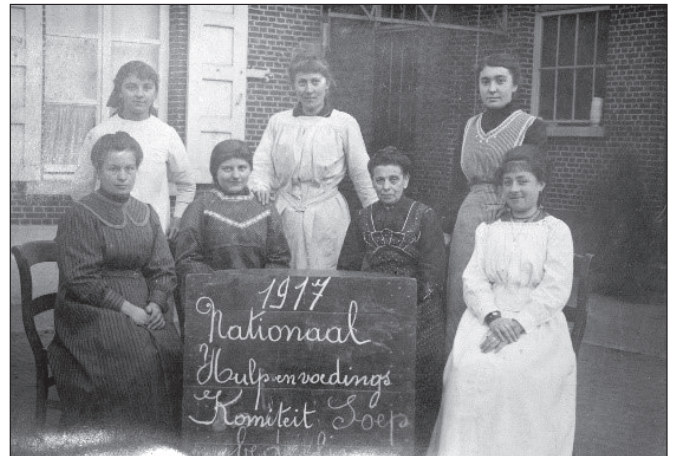 1917
Nationaal
Hulp en voedings
Komiteit Soep